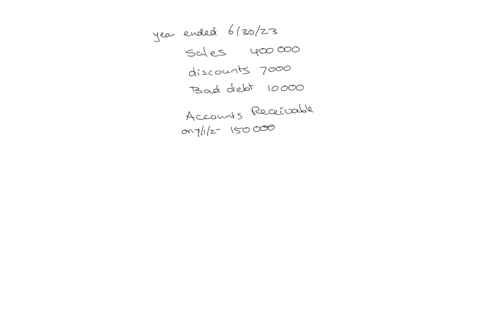 year ended 6/30/23
Sales 400000
discounts 7000
Bad debt 10000
Accounts Receivable
on 7/1/2- 150000